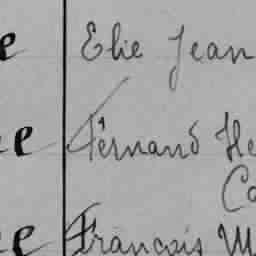 e Elie Jean
e Fernand He
Co
e François M